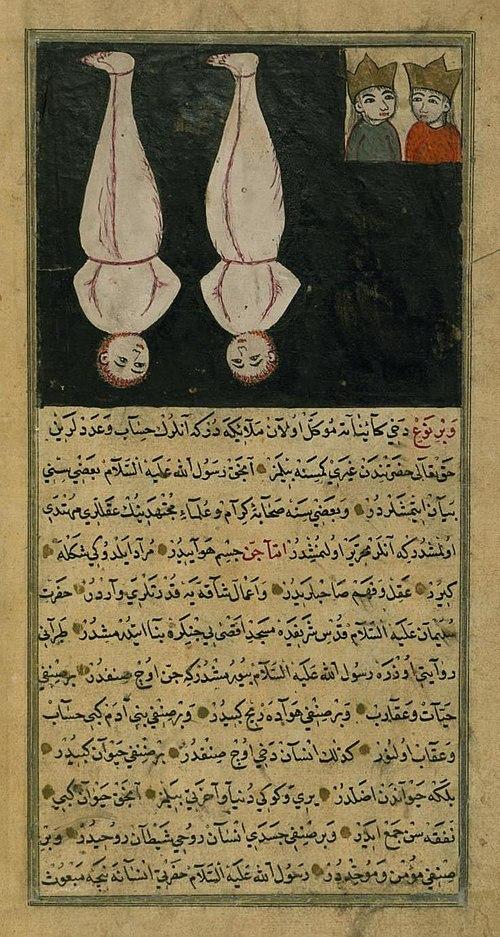 وبر نوع دخی کائیناته موکل اولان ملائیکه در که انلرك حساب وعددلرین
حق تعالی حضرتندن غیری کمسنه بیلمز انجق رسول الله علیه السلام بعضی سنی
بیان ایتمشلردر وبعضی سنه صحابۀ کرام وعلماء مجتهدینك عقللری مهتدی
اولمشدر که انلر محرر اولنمشدر اما جن جسم هوایدر مراد ایلدوکی شکله
کیرر عقل وفهم صاحبلریدر واعمال شاقه یه قدرتلری واردر حضرت
سلیمان علیه السلام قدس شریفده مسجد اقصی یی جنلره بنا ایتدرمشدر طبرانی
روایتی اوزره رسول الله علیه السلام بیورمشدر که جن اوچ صنفدر بر صنفی
حیات وعقارب وبر صنفی هواده ریح کبیدر وبر صنفی بنی ادم کبی حساب
وعقاب اولنور کذلك انسان دخی اوچ صنفدر بر صنفی حیوان کبیدر
بلکه حیواندن اضلدر یری وکوکی دنیا واخرتی بیلمز انجق حیوان کبی
نفقه سن جمع ایدر وبر صنفی جسدی انسان روحی شیطان روحیدر وبر
صنفی مؤمن وموحددر رسول الله علیه السلام حضرتی انسانه نیجه مبعوث